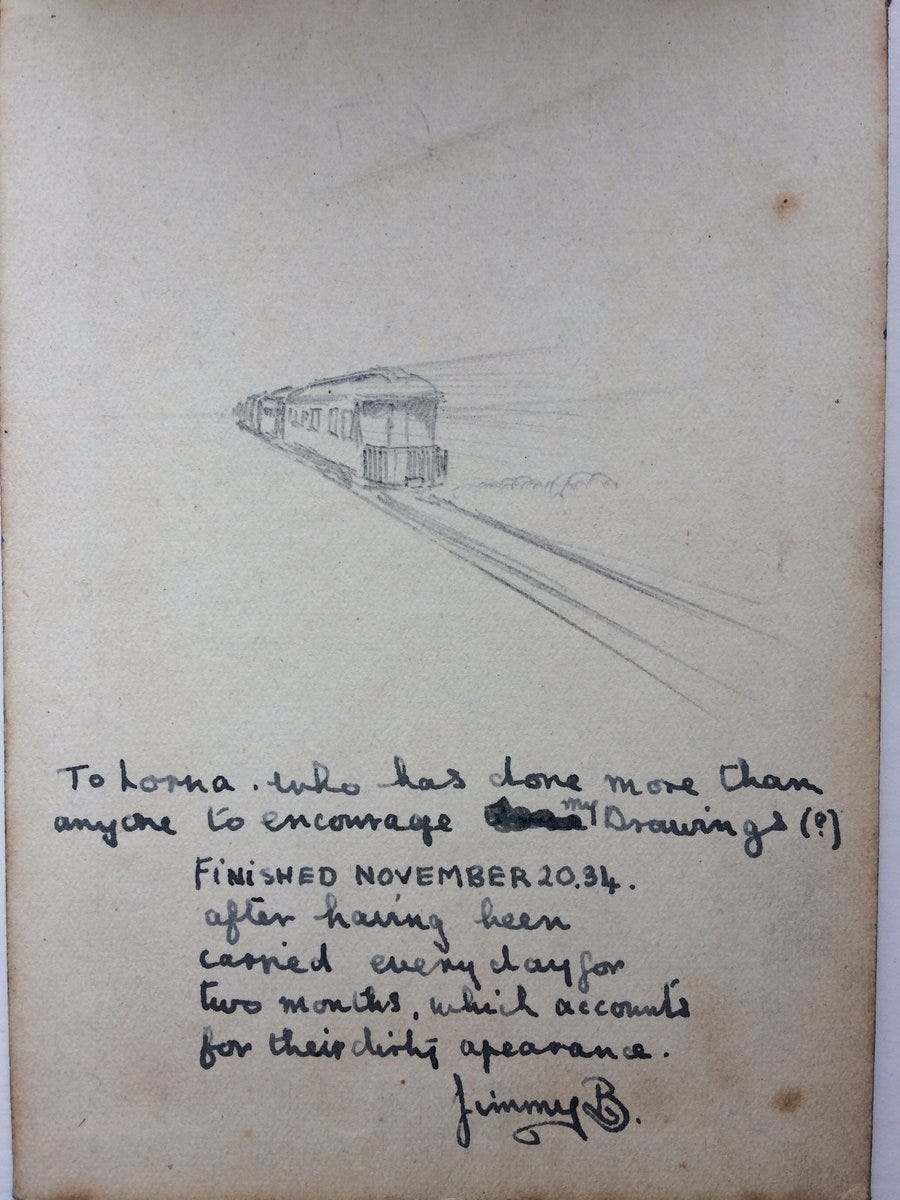 To Lorna. who has done more than
anyone to encourage my Drawings (?)
FINISHED NOVEMBER 20.34.
after having been
carried every day for
two months, which accounts
for their dirty apearance.
Jimmy B.